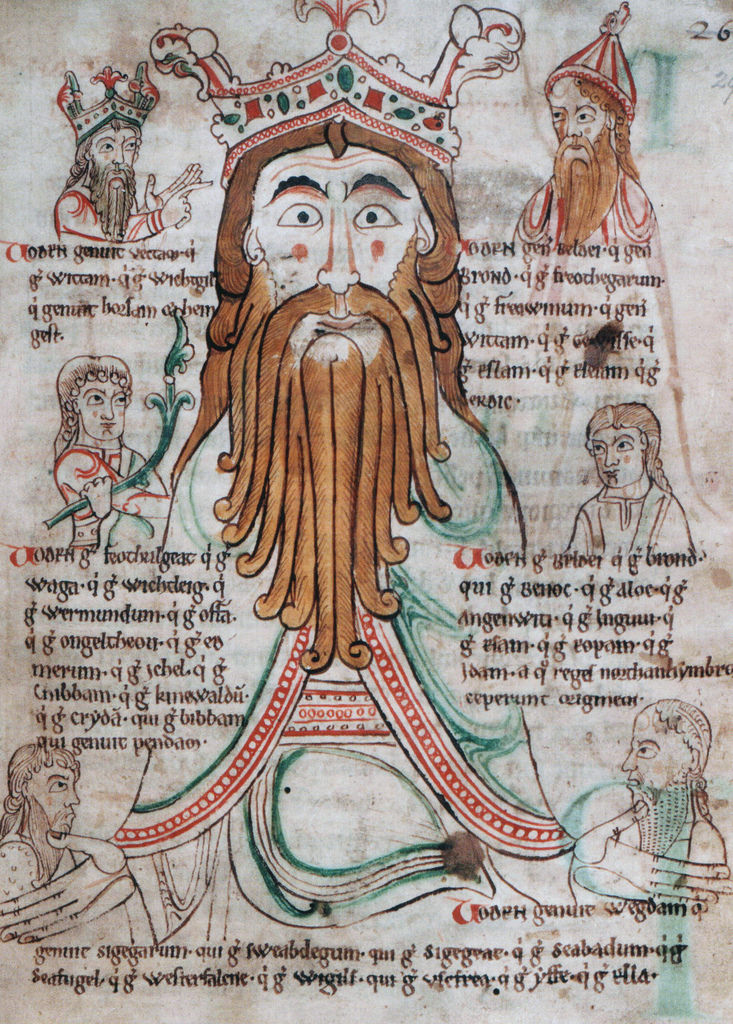 26
29
Uoden genuit vectam· q̇
g̃ wittam· q̇ g̃ wichtgil
q̇ genuit horsam ⁊ hen
gest·
Uoden geñ beldei· q̇ geñ
Brond· q̇ g̃ freothegarum·
q̇ g̃ frewinum· q̇ geñ
wittam· q̇ g̃ Gewisse· q̇
g̃ eslam· q̇ g̃ elesam q̇ g̃
cerdic·
Uoden g̃ feothulgeat q̇ g̃
waga· q̇ g̃ wichtleig· q̇
g̃ wermundum· q̇ g̃ offa·
q̇ g̃ ongeltheou· q̇ g̃ eo
merum· q̇ g̃ ichel· q̇ g̃
Cnibbam· q̇ g̃ kinewaldū·
q̇ g̃ crydā· qui g̃ bibbam
qui genuit pendam·
Uoden g̃ beldei q̇ g̃ brond·
qui g̃ benoc· q̇ g̃ aloc· q̇ g̃
Angenwiti· q̇ g̃ inguui· q̇
g̃ esam· q̇ g̃ eopam· q̇ g̃
Idam· a q̊ reges northanhymbro
ceperunt originem·
Uoden genuit wegdam q̇
genuit sigegarum· qui g̃ sweabdegum· qui g̃ sigegeat· q̇ g̃ seabadum· q̇ g̃
seafugel· q̇ g̃ westerfalcne· q̇ g̃ wigils· qui g̃ vscfrea· q̇ g̃ yffe· q̇ g̃ ella·